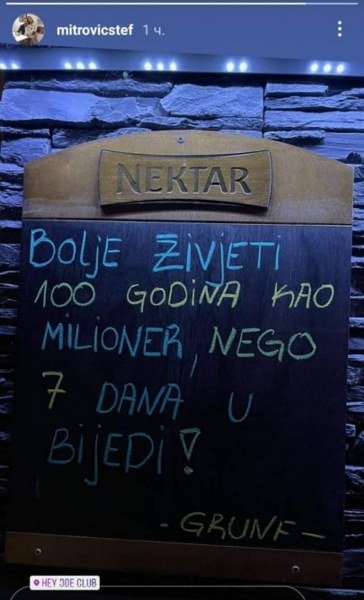 mitrovicstef 1 ч.
NEKTAR
BOLJE ŽIVJETI
100 GODINA KAO
MILIONER, NEGO
7 DANA U
BIJEDI!
- GRUNF -
HEY JOE CLUB